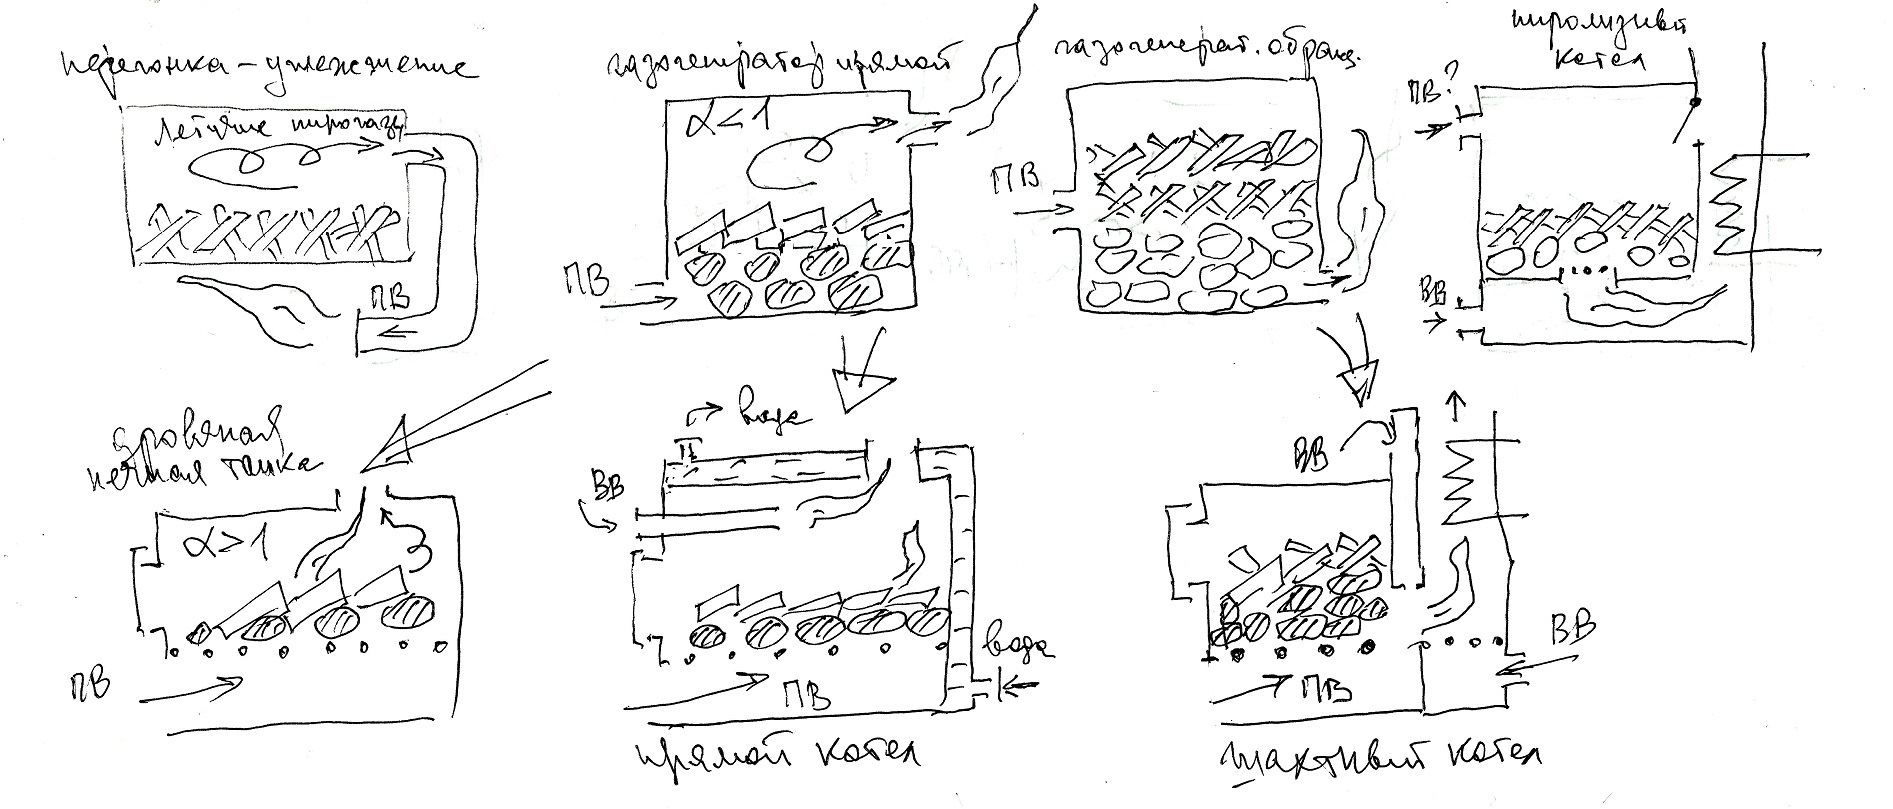 перегонка-углежжение
газогенератор прямой
газогенерат. обращ.
пиролизный
котел
Летучие пирогазы
ПВ
ПВ
α<1
ПВ
ПВ?
ВВ
дровяная
печная топка
α>1
ПВ
вода
ВВ
вода
ПВ
прямой котел
ВВ
ВВ
ПВ
шахтный котел